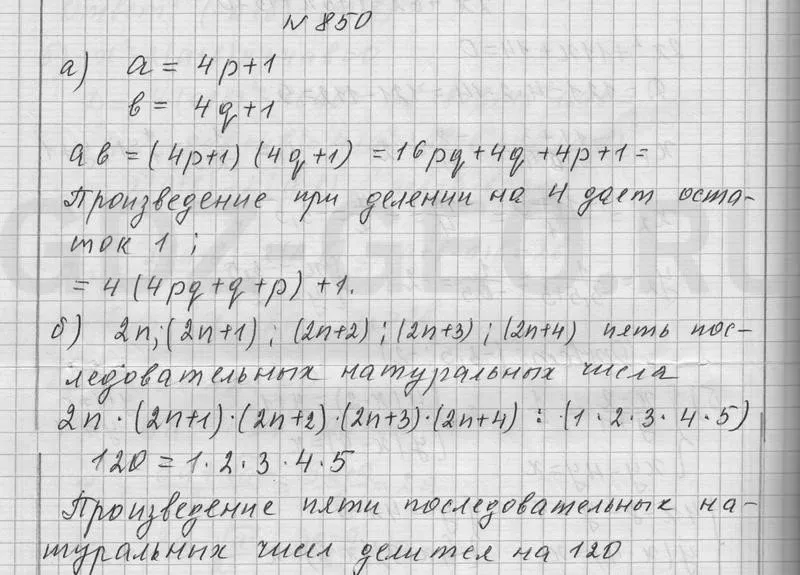 № 850
а) a = 4p+1
в = 4q+1
aв = (4p+1) (4q+1) = 16pq+4q+4p+1=
Произведение при делении на 4 дает оста-
ток 1 ;
= 4 (4pq+q+p) +1.
б) 2n; (2n+1) ; (2n+2) ; (2n+3) ; (2n+4) пять пос-
ледовательных натуральных числа
2n · (2n+1) · (2n+2) · (2n+3) · (2n+4) : (1 · 2 · 3 · 4 · 5)
120 = 1 · 2 · 3 · 4 · 5
Произведение пяти последовательных на-
туральных чисел делится на 120